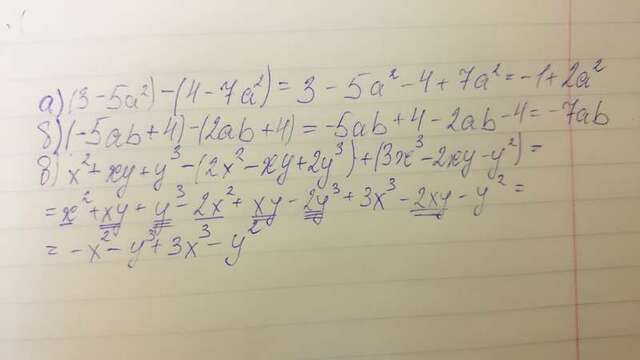 а) (3 - 5a²) - (4 - 7a²) = 3 - 5a² - 4 + 7a² = -1 + 2a²
б) (-5ab + 4) - (2ab + 4) = -5ab + 4 - 2ab - 4 = -7ab
в) x² + xy + y³ - (2x² - xy + 2y³) + (3x³ - 2xy - y²) =
= x² + xy + y³ - 2x² + xy - 2y³ + 3x³ - 2xy - y² =
= -x² - y³ + 3x³ - y²